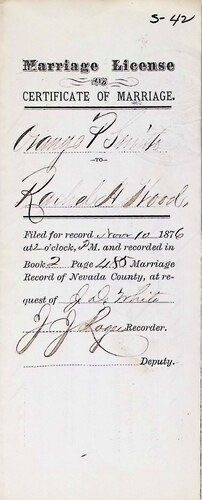 S-42
Marriage License
CERTIFICATE OF MARRIAGE.
P Smith
—TO—
Rachel A Wood,
Filed for record Nov 10 1876
at 2 o'clock, P M. and recorded in
Book 2 Page 485 Marriage
Record of Nevada County, at re-
quest of J. D. White
J J Rogers Recorder.
Deputy.